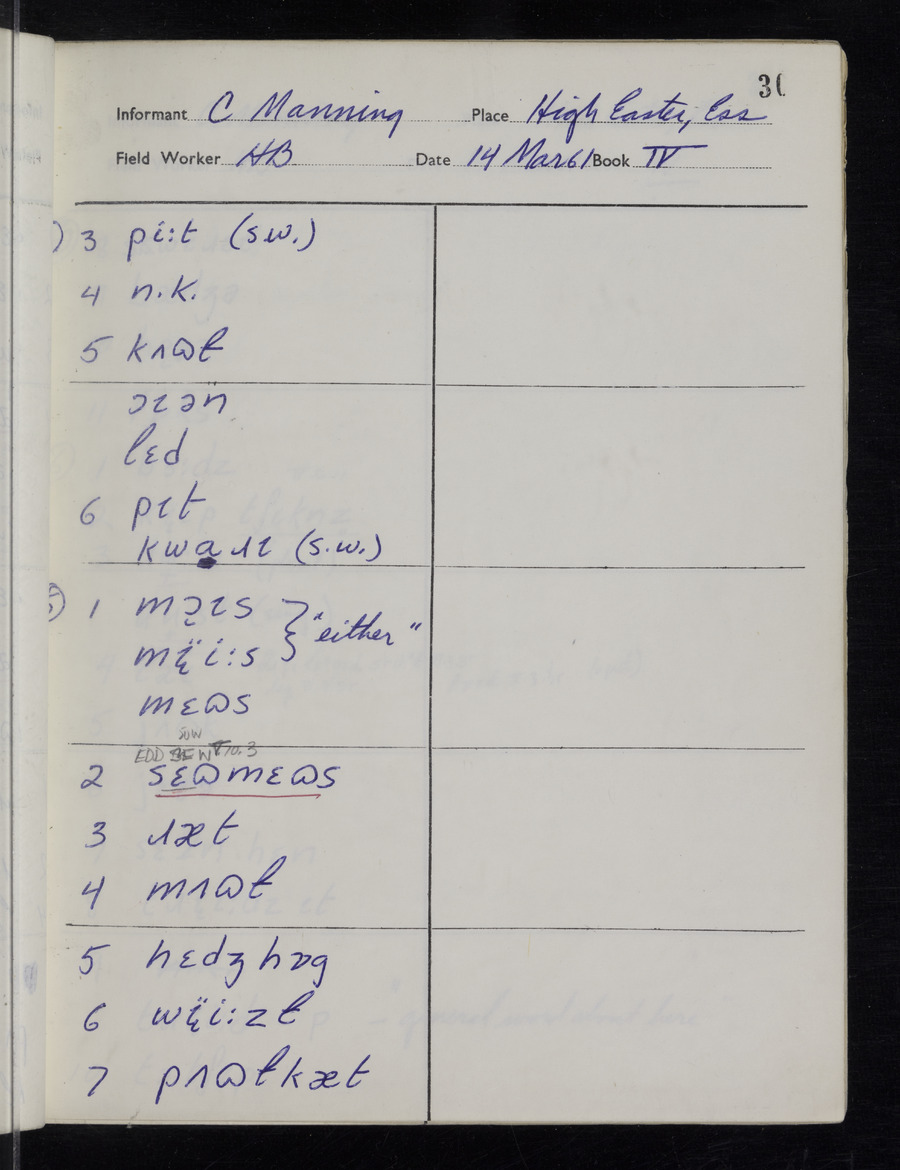 30
Informant C Manning Place High Easter, Ess
Field Worker HB Date 14 Mar 61 Book IV
) 3 pi:t (s.w.)
4 n.k.
5 kʌɷɫ
ɔɪən̈
lɛd
6 pɪt
kwaɹɪ (s.w.)
5) 1 mɔ̜ɪs } "either"
mɛ̜̈i:s
mɛɷs
sow
EDD 10.3
2 sɛɷmɛɷs
3 ɹæt
4 mʌɷɫ
5 hɛdʒhɒg
6 wɛ̜̈i:zɫ
7 pʌɷɫkæt